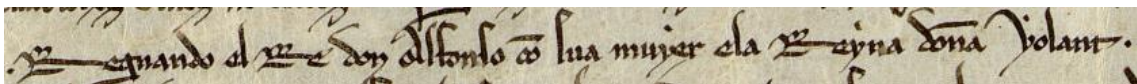 . Regnando el Re don Alfonso cõ sua muyer ela Reyna dona Yolant.